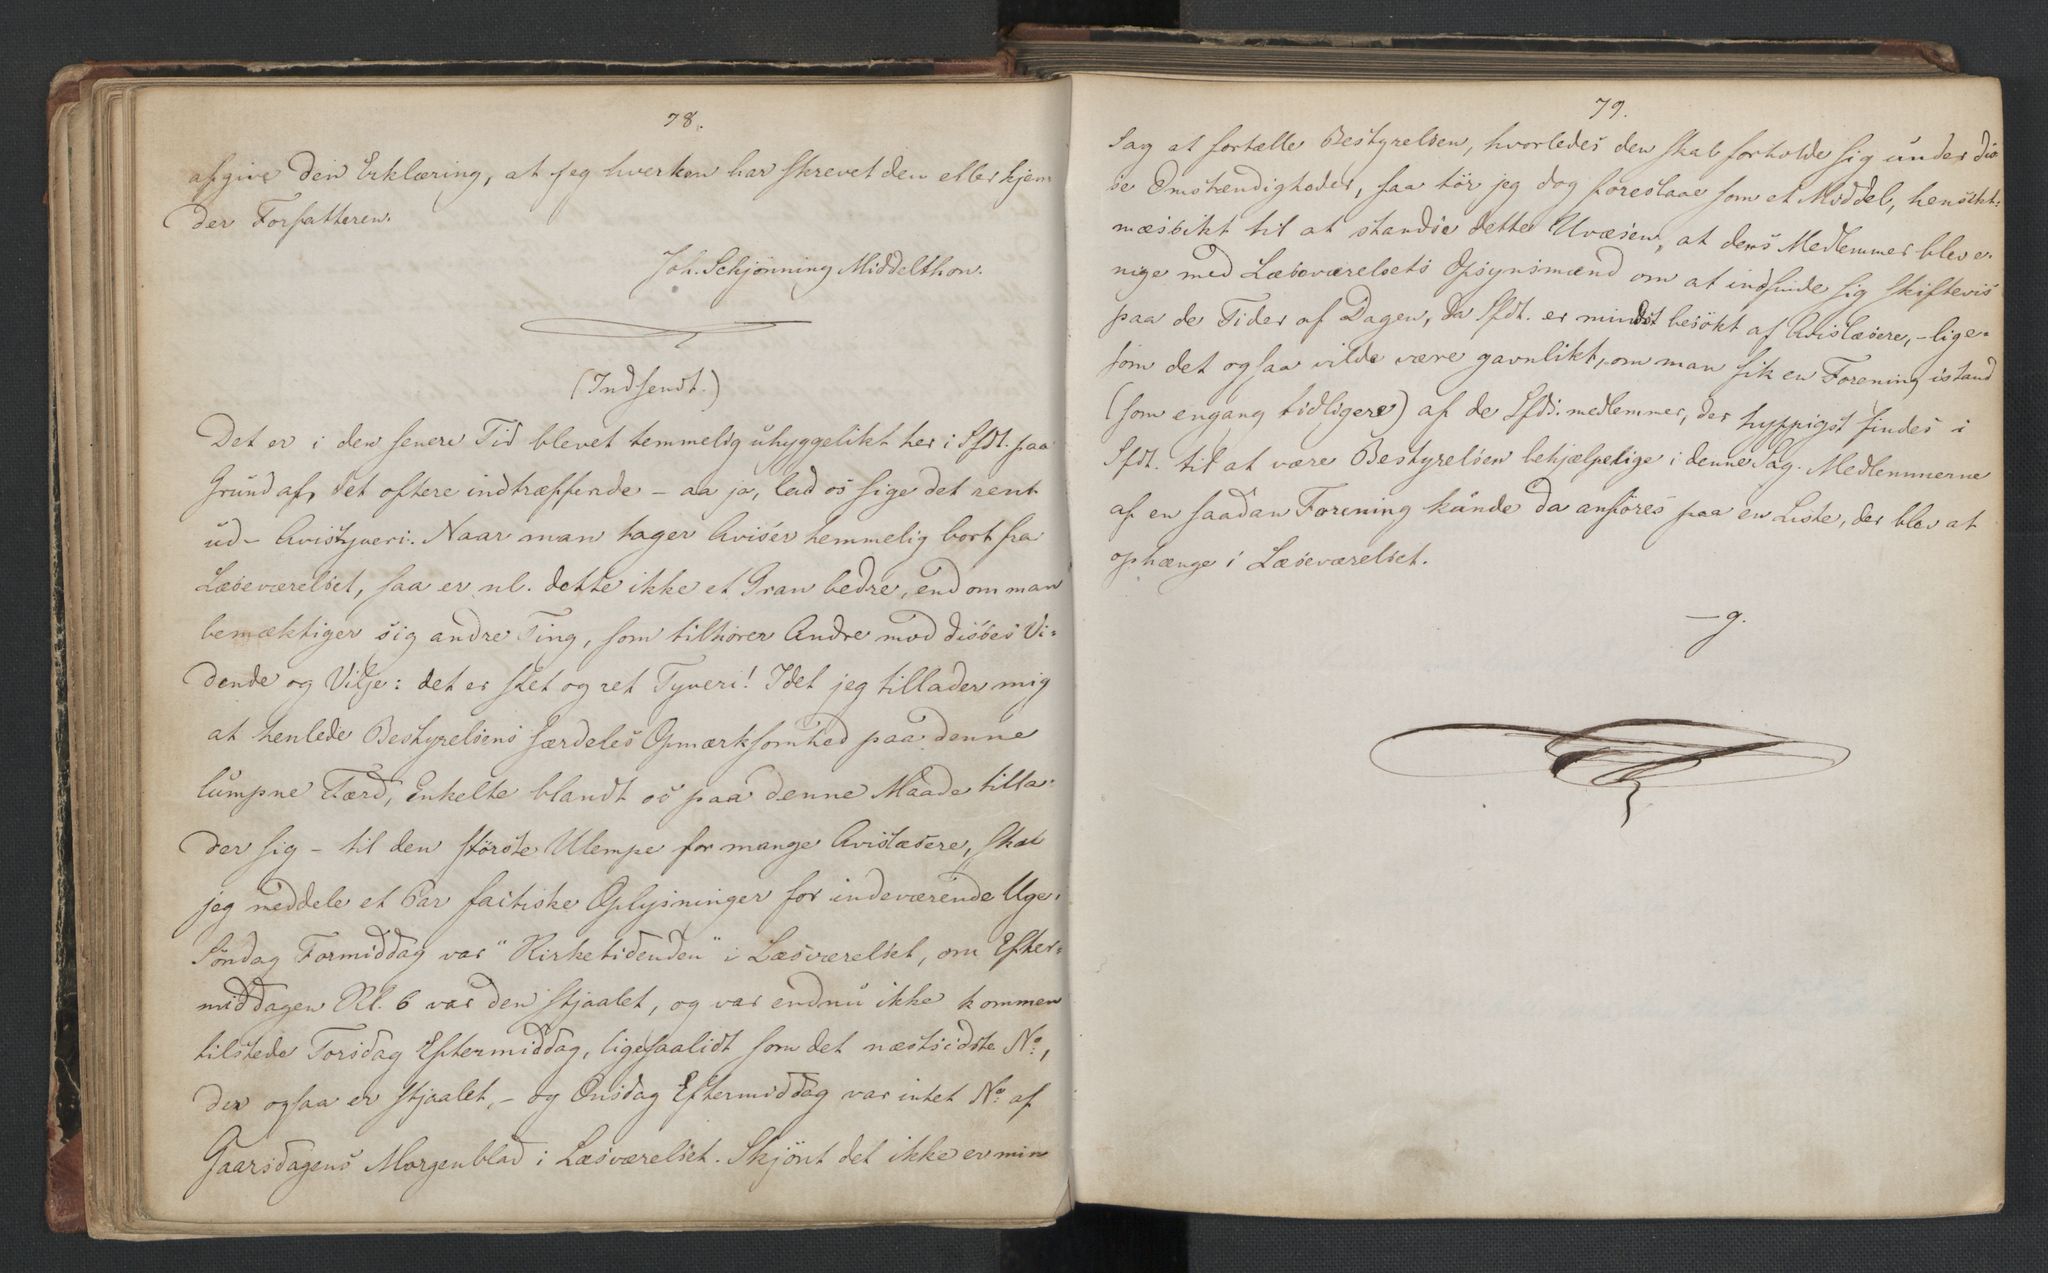 78.
afgive den Erklæring, at jeg hverken har skrevet den eller kjen
der Forfatteren.
Joh. Schjønning Middelthon.
(Indsendt.)
Det er i den senere Tid blevet temmelig uhyggelikt her i Sfdt. paa
Grund af, det oftere indtræffende – aa ja, lad os sige det rent
ud – Avistyveri. Naar man tager Aviser hemmelig bort fra
Læseværelset, saa er nl. dette ikke et Gran bedre, end om man
bemæktiger sig andre Ting, som tilhører Andre mod disses Vi-
dende og Vilje: det er slet og ret Tyveri! Idet jeg tillader mig
at henlede Bestyrelsens særdeles Opmærksomhed paa denne
lumpne Færd, Enkelte blandt os paa denne Maade tilla-
der sig – til den største Ulempe for mange Avislæsere, skal
jeg meddele et Par factiske Oplysninger for indeværende Uge.
Søndag Formiddag var "Kirketidenden" i Læsværelset, om Efter-
middagen Kl. 6 var den stjaalet, og var endnu ikke kommen
tilstede Torsdag Eftermiddag, ligesaalidt som det næstsidste No.,
der ogsaa er stjaalet, – og Onsdag Eftermiddag var intet No. af
Gaarsdagens Morgenblad i Læsværelset. Skjønt det ikke er min
79.
Sag at fortælle Bestyrelsen, hvorledes den skal forholde sig under dis
se Omstændigheder, saa tør jeg dog foreslaae som et Middel, hensikt-
mæssikt til at standse dette Uvæsen, at dens Medlemmer blev e-
nige med Læseværelsets Opsynsmænd om at indfinde sig skiftevis
paa de Tider af Dagen, da Sfdt. er mindst besøkt af Avislæsere, – lige-
som det ogsaa vilde være gavnlikt, om man fik en Forening istand
(som engang tidligere) af de Sfds. medlemmer, der hyppigst findes i
Sfdt. til at være Bestyrelsen behjælpelige i denne Sag. Medlemmerne
af en saadan Forening kunde da anføres paa en Liste, der blev at
ophænge i Læseværelset.
– g.